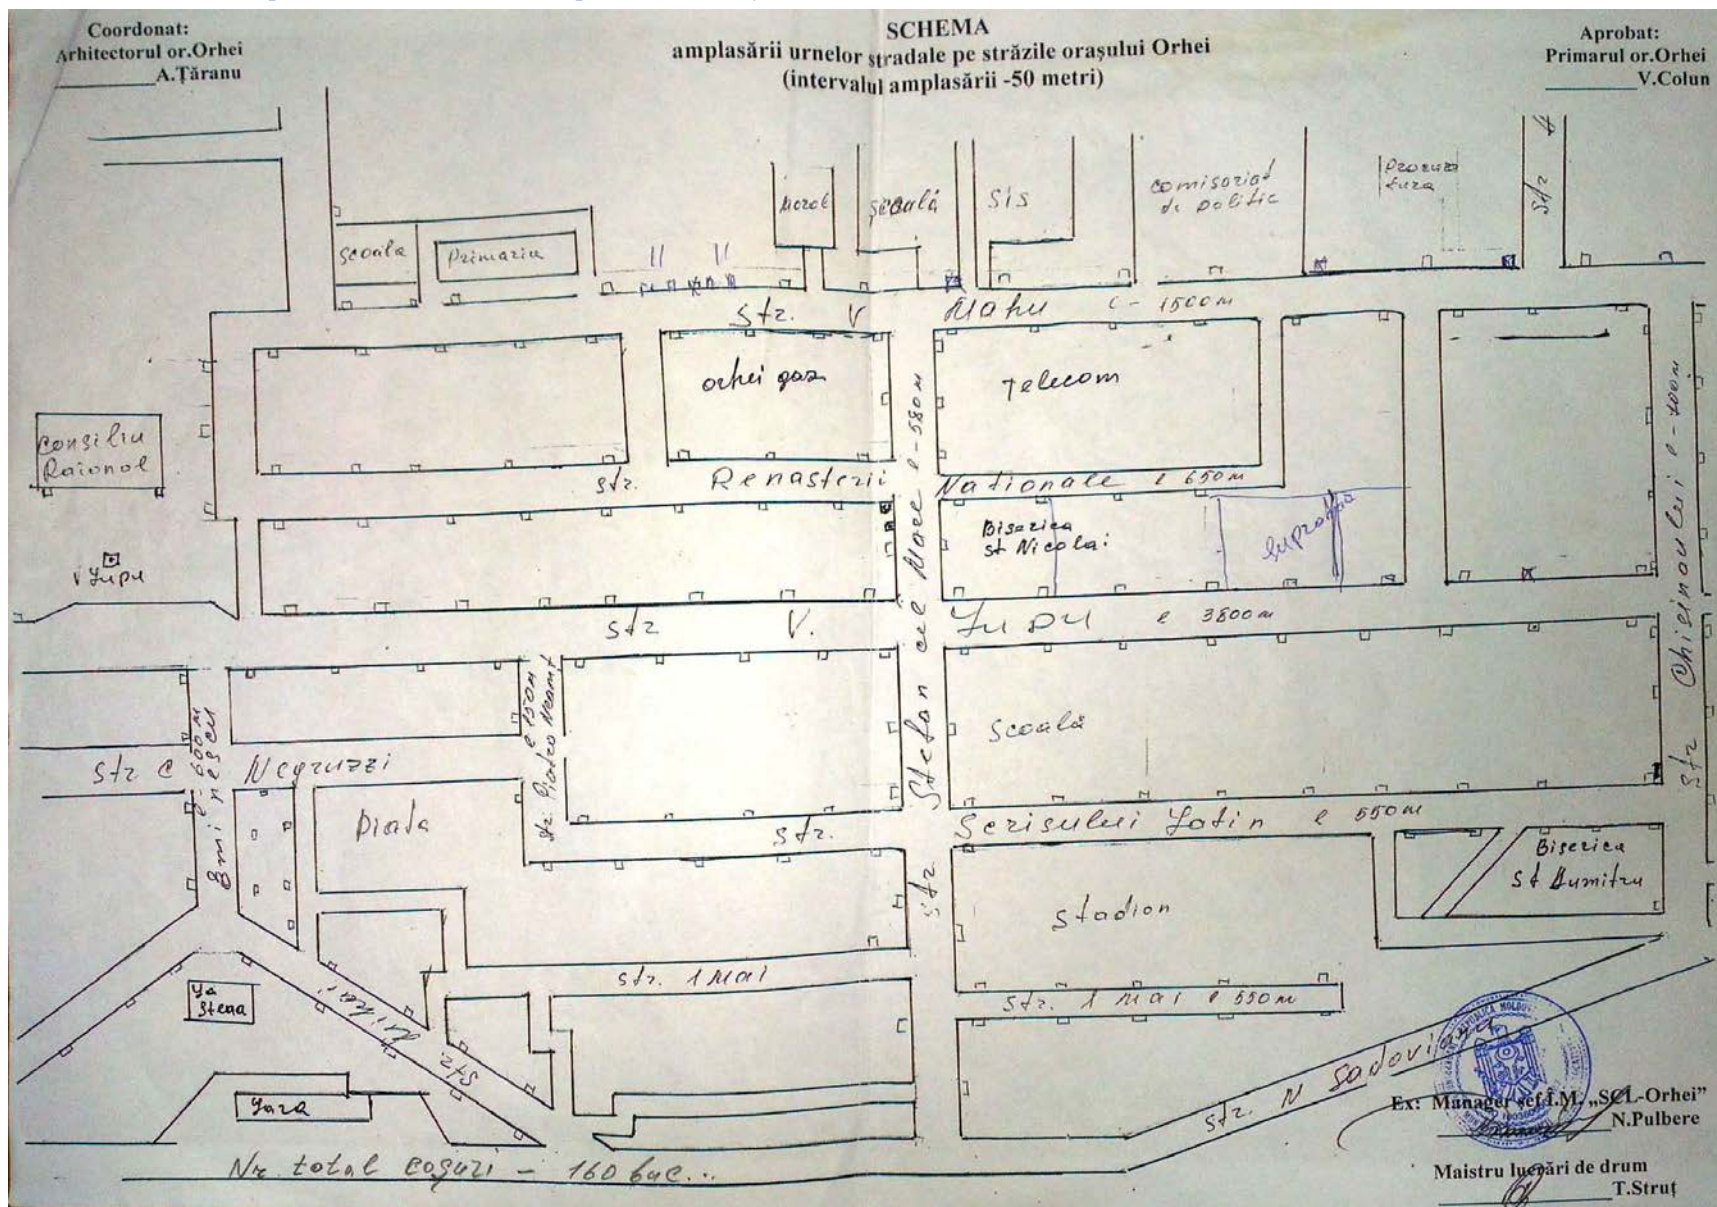 Coordonat:
Arhitectorul or.Orhei
A.Țăranu
SCHEMA
amplasării urnelor stradale pe străzile orașului Orhei
(intervalul amplasării -50 metri)
Aprobat:
Primarul or.Orhei
V.Colun
Școala
Primaria
școală
SIS
comisariat
de politie
Procura
tura
Str
Str. V Mahu l - 1500 m
orhei gaz
Telecom
Consiliu
Raional
str. Renasterii Nationale l 650 m
Biserica
st Nicolai
V Lupu
Str V. Lupu l 3800 m
Str Stefan cel Mare l - 580 m
Str Chisinaului l -
Școală
Str C Negruzzi
Eminescu l - 600 m
Str. Piatra Neamt
l 150 m
Piata
str. Scrisului Latin l 550 m
Biserica
st Dumitru
Stadion
str. 1 Mai
str. 1 Mai l 550 m
Str.
Gara
str. N Sadovianu
REPUBLICA MOLDOVA
Ex: Manager șef Î.M. „SCL-Orhei”
N.Pulbere
Maistru lucrări de drum
T.Struț
Nr total coșuri - 160 buc...